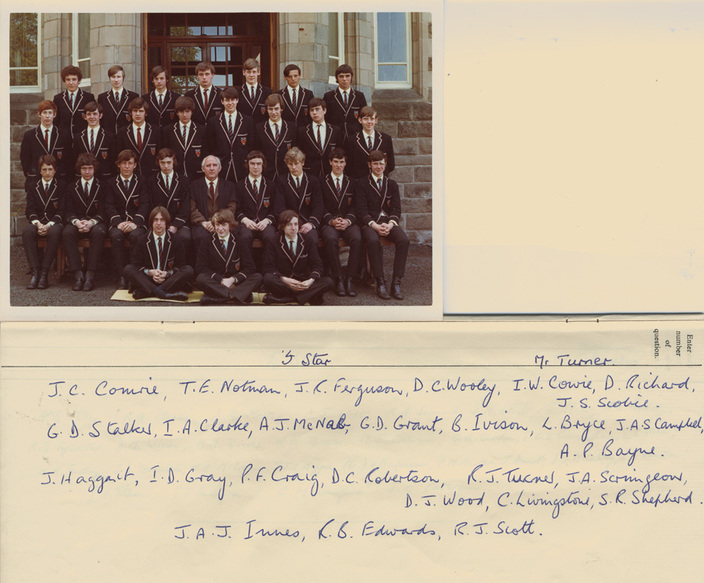 Enter
number
of
question.
5 Star Mr Turner.
J.C. Comrie, T.E. Notman, J.R. Ferguson, D.C. Wooley, I.W. Cowie, D. Richard,
J.S. Scobie.
G.D. Stalker, I.A. Clarke, A.J. McNab, G.D. Grant, B. Ivison, L. Bryce, J.A.S Campbell,
A.P. Bayne.
J. Haggart, I.D. Gray, P.F. Craig, D.C. Robertson, R.J. Turner, J.A. Scrimgeour,
D.J. Wood, C. Livingstone, S.R. Shepherd.
J.A.J. Innes, R.B. Edwards, R.J. Scott.